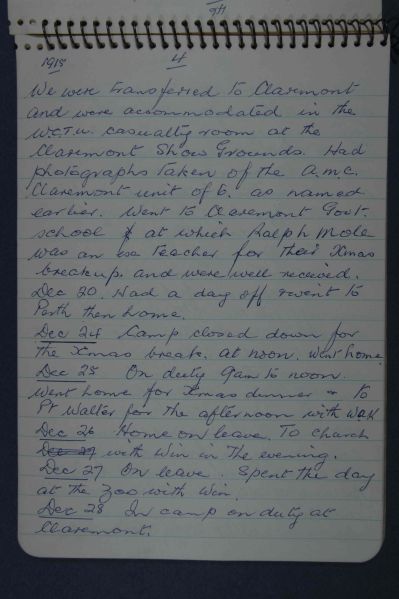 1915 4
We were transferred to Claremont
and were accommodated in the
W.C.T.U. casualty room at the
Claremont Show Grounds. Had
photographs taken of the A.M.C.
Claremont unit of 6. as named
earlier. Went to Claremont Govt.
school at which Ralph Mole
was an ex teacher for their Xmas
breakup. and were well received.
Dec 20. Had a day off & went to
Perth then home.
Dec 24 Camp closed down for
the Xmas break. at noon. Went home
Dec 25 On duty 9am to noon.
Went home for Xmas dinner & to
Pt Walter for the afternoon with
Dec 26 Home on leave. To church
Dec 27 with Win in the evening.
Dec 27 On leave. Spent the day
at the Zoo with Win.
Dec 28 In camp on duty at
Claremont.